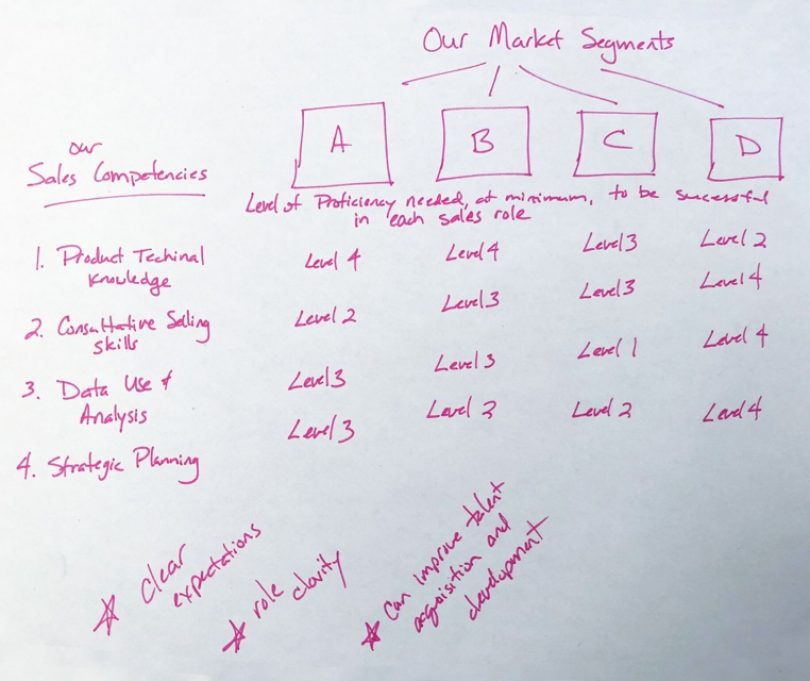 Our Market Segments
A B C D
our
Sales Competencies
Level of Proficiency needed, at minimum, to be successful
in each sales role
1. Product Techinal
Knowledge
Level 4 Level 4 Level 3 Level 2
2. Consultative Selling
Skills
Level 2 Level 3 Level 3 Level 4
3. Data Use &
Analysis
Level 3 Level 3 Level 1 Level 4
4. Strategic Planning
Level 3 Level 2 Level 4
clear
expectations
role
clarity
Can improve talent
acquisition and
development